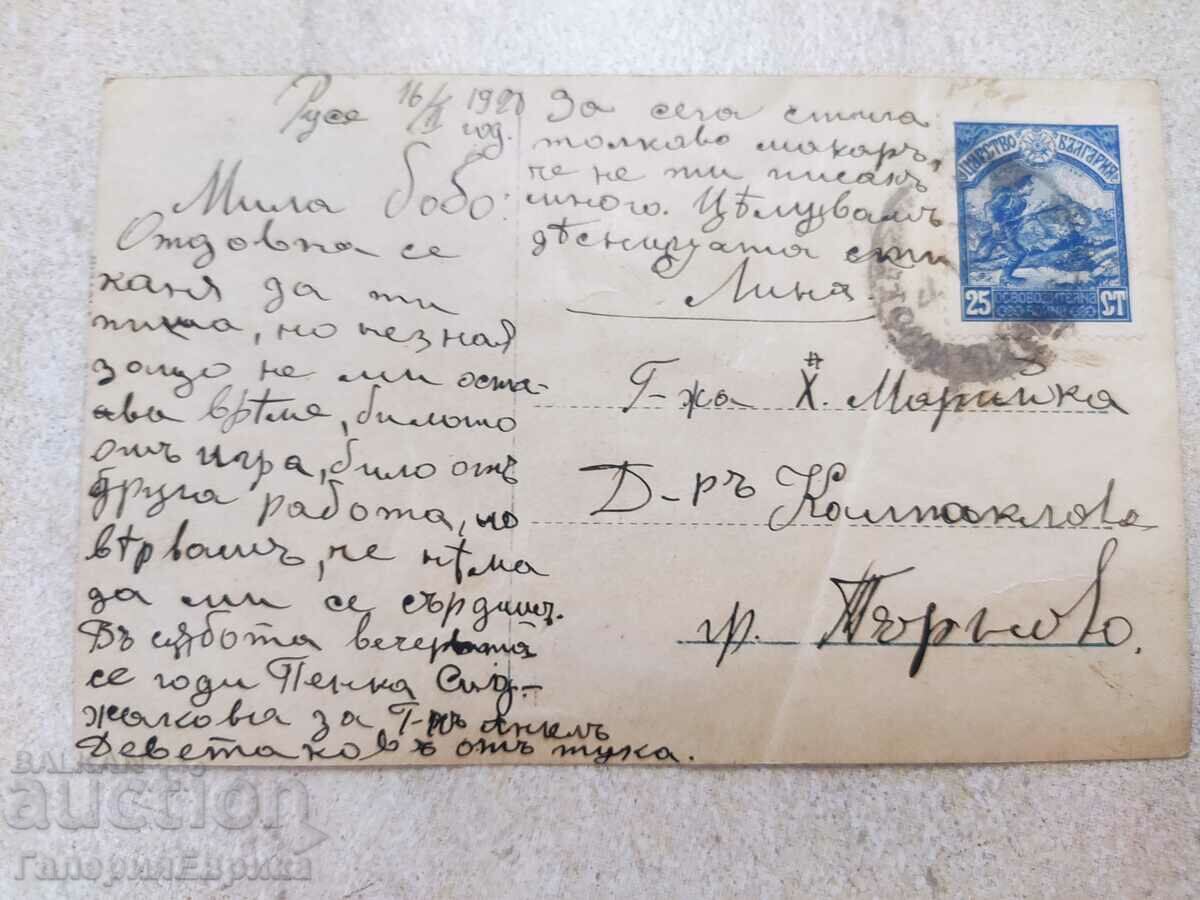 Русе 16/II 1920 год.
Мила бобо:
Отдовна се
каня да ти
пиша, но незная
защо не ми оста-
ава врѣме, билото
отъ игра, било отъ
друга работа, но
вѣрвамъ, че нѣма
да ми се сърдишъ.
Въ сѫбота вечерьта
се годи Пенка
жакова за Г-нъ
Деветаковъ отъ тука.
За сега стига
толково макаръ,
че не ти писахъ
много. Цѣлувамъ
дѣсницата ти
Лина.
ЦАРСТВО БЪЛГАРИЯ
25 ОСВОБОДИТЕЛНА СТ
Г-жа Х. Марийка
Д-ръ Калпаклова
гр. Търново.
BALKAN
auction
ГалерияЕврика